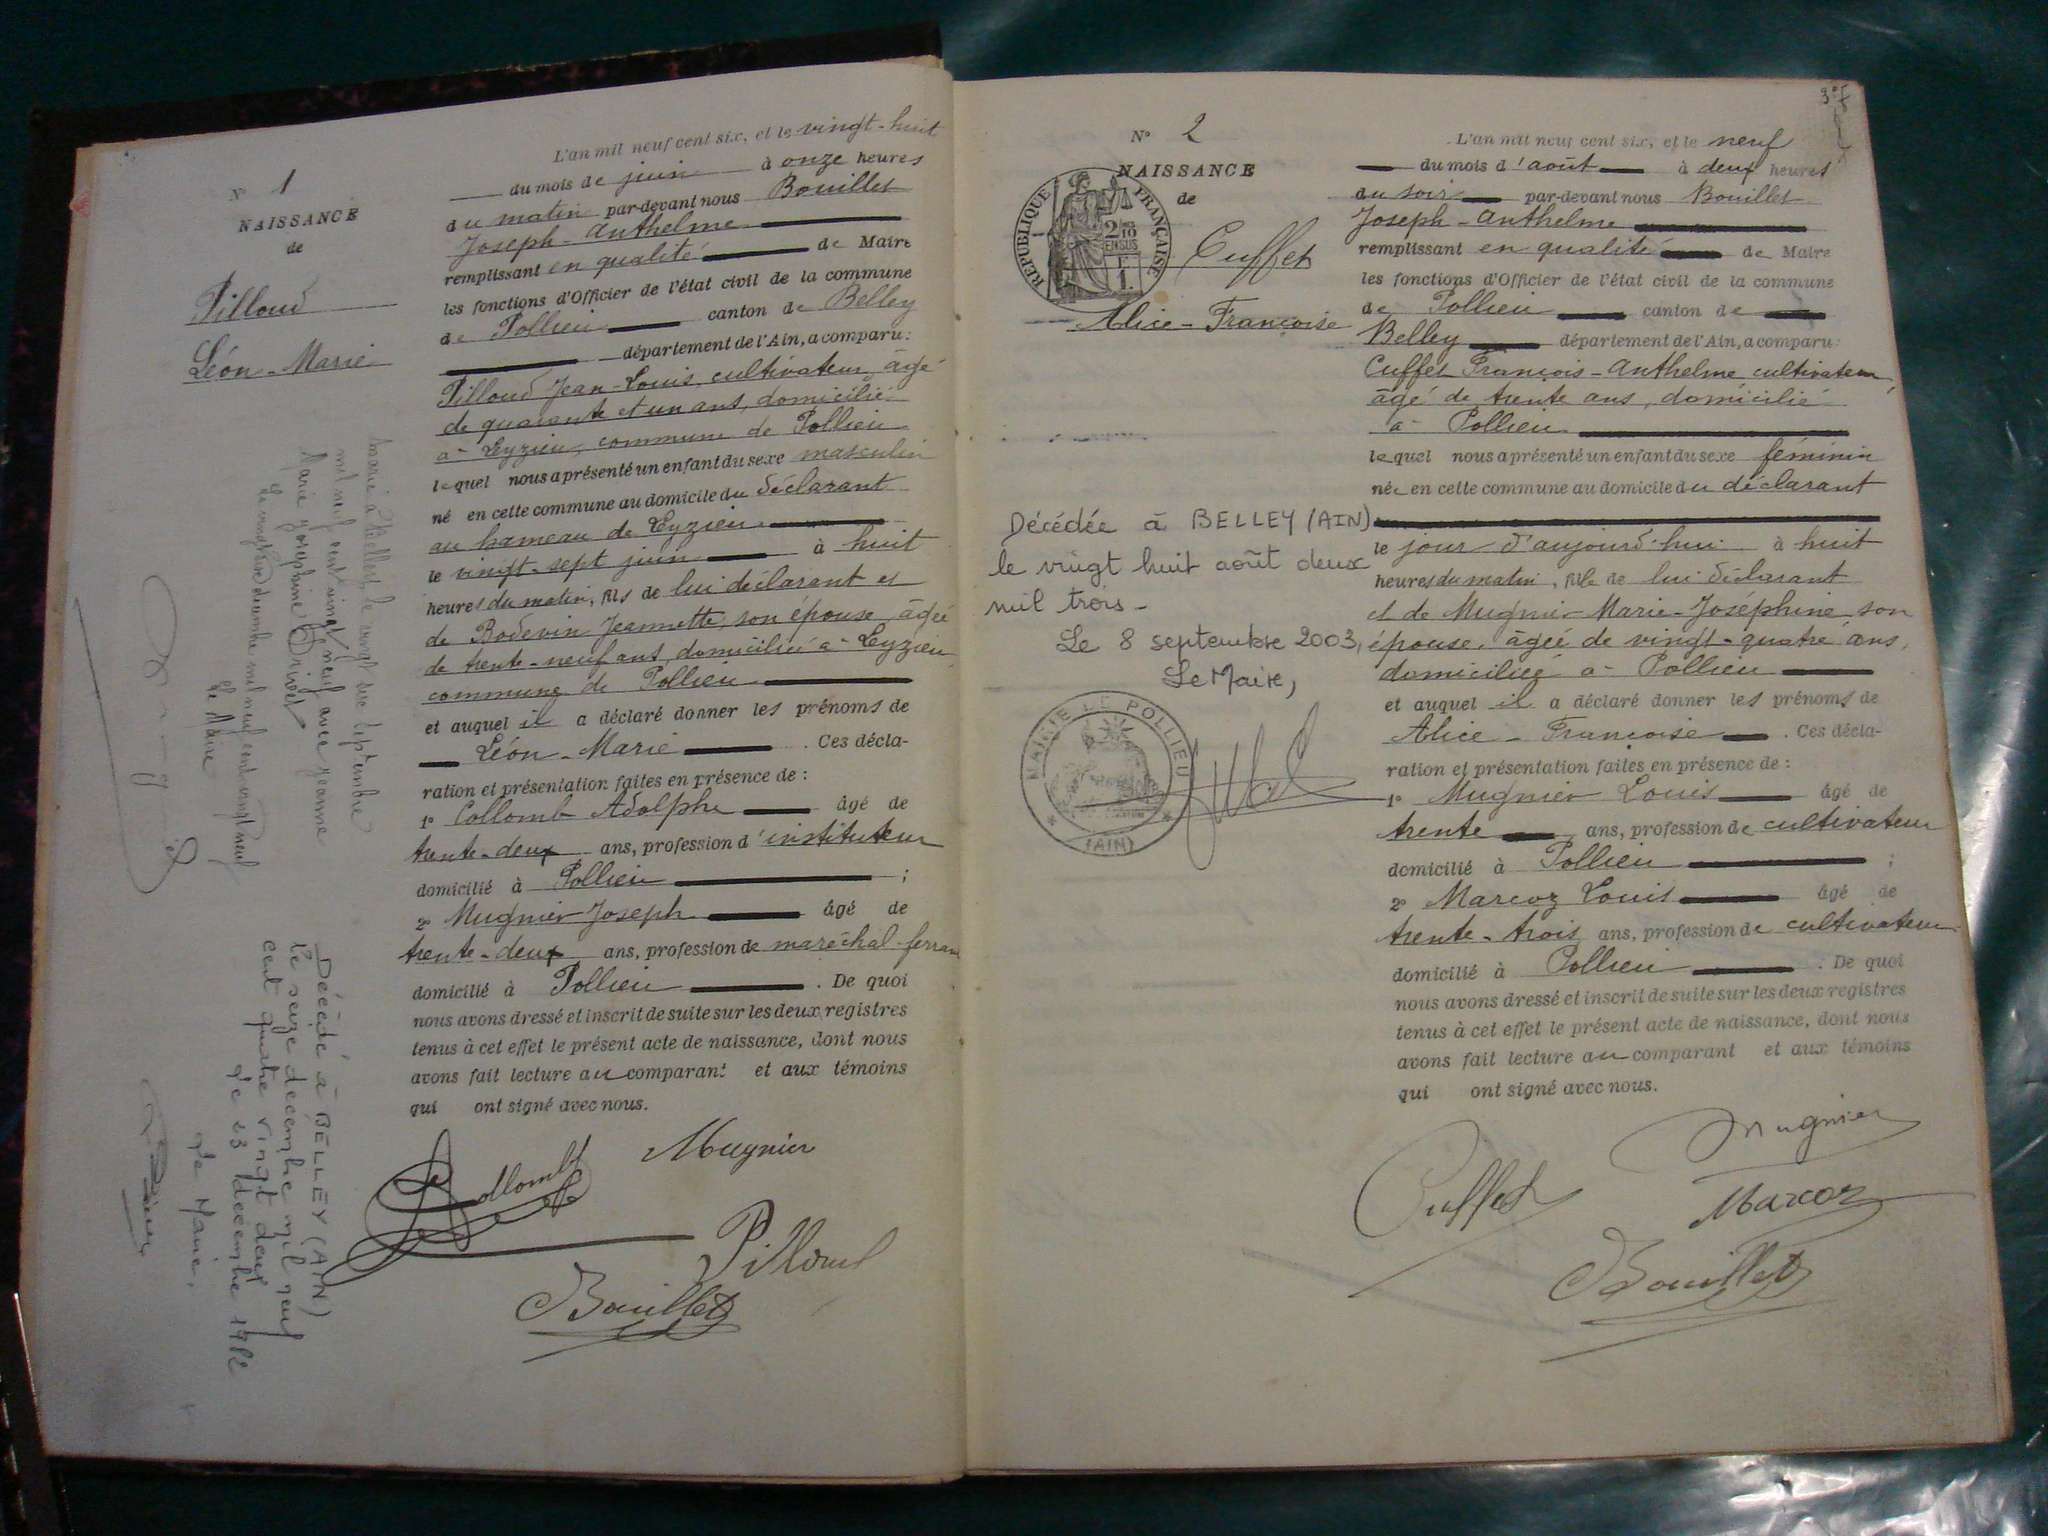 N° 1
NAISSANCE
de
Pilloud
Léon-Marie
L'an mil neuf cent six, et le vingt-huit
du mois de juin à onze heures
du matin par-devant nous Bouillet
Joseph-Anthelme
remplissant en qualité de Maire
les fonctions d'Officier de l'état civil de la commune
de Pollieu canton de Belley
département de l'Ain, a comparu:
Pilloud Jean-Louis, cultivateur, âgé
de quarante et un ans, domicilié
à Eyzieu, commune de Pollieu
lequel nous a présenté un enfant du sexe masculin
né en cette commune au domicile du déclarant
au hameau de Eyzieu
le vingt-sept juin à huit
heures du matin, fils de lui déclarant et
de Bodevin Jeannette, son épouse, âgée
de trente-neuf ans, domiciliée à Eyzieu
commune de Pollieu
et auquel il a déclaré donner les prénoms de
Léon-Marie . Ces décla-
ration et présentation faites en présence de :
1° Collomb Adolphe âgé de
trente-deux ans, profession d'instituteur
domicilié à Pollieu ;
2° Mugnier Joseph âgé de
trente-deux ans, profession de maréchal-ferran
domicilié à Pollieu . De quoi
nous avons dressé et inscrit de suite sur les deux registres
tenus à cet effet le présent acte de naissance, dont nous
avons fait lecture au comparant et aux témoins
qui ont signé avec nous.
Collomb Mugnier
Pilloud
Bouillet
le vingt six septembre
mil neuf cent vingt neuf avec Jeanne
Marie Joséphine
Le vingt six décembre mil neuf cent vingt neuf
Le Maire
Décédé à BELLEY (AIN)
le seize décembre mil neuf
cent quatre vingt deux
Le 23 décembre 1982
Le Maire,
3° f
N° 2
NAISSANCE
de
RÉPUBLIQUE FRANÇAISE
2/10 EN SUS
Cuffet
Alice-Françoise
L'an mil neuf cent six, et le neuf
du mois d'août à deux heures
du soir par-devant nous Bouillet
Joseph-Anthelme
remplissant en qualité de Maire
les fonctions d'Officier de l'état civil de la commune
de Pollieu canton de
Belley département de l'Ain, a comparu:
Cuffet François-Anthelme cultivateur,
âgé de trente ans, domicilié
à Pollieu
lequel nous a présenté un enfant du sexe féminin
née en cette commune au domicile du déclarant
le jour d'aujourd'hui à huit
heures du matin, fille de lui déclarant
et de Mugnier Marie-Joséphine, son
épouse, âgée de vingt-quatre ans,
domiciliée à Pollieu
et auquel il a déclaré donner les prénoms de
Alice-Françoise . Ces décla-
ration et présentation faites en présence de :
1° Mugnier Louis âgé de
trente ans, profession de cultivateur
domicilié à Pollieu ;
2° Marcoz Louis âgé de
trente-trois ans, profession de cultivateur
domicilié à Pollieu . De quoi
nous avons dressé et inscrit de suite sur les deux registres
tenus à cet effet le présent acte de naissance, dont nous
avons fait lecture au comparant et aux témoins
qui ont signé avec nous.
Mugnier
Cuffet Marcoz
Bouillet
Décédée à BELLEY (AIN)
le vingt huit août deux
mil trois -
Le 8 septembre 2003,
Le Maire,
MAIRIE DE POLLIEU
(AIN)